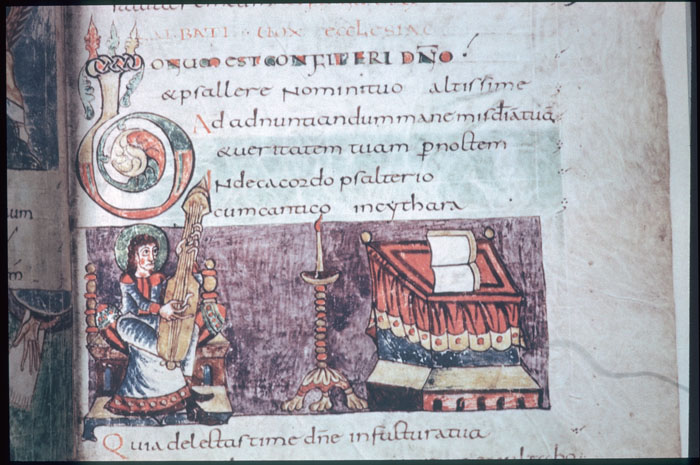 ECCLESIAE
BONUM EST CONFITERI DÑO
&psallere Nominituo altissime
Ad adnuntiandum mane misdiã tuã
&ueritatem tuam p noctem
INdecacordo psalterio
cumcantico incythara
Quia delectastime dñe infacturatua